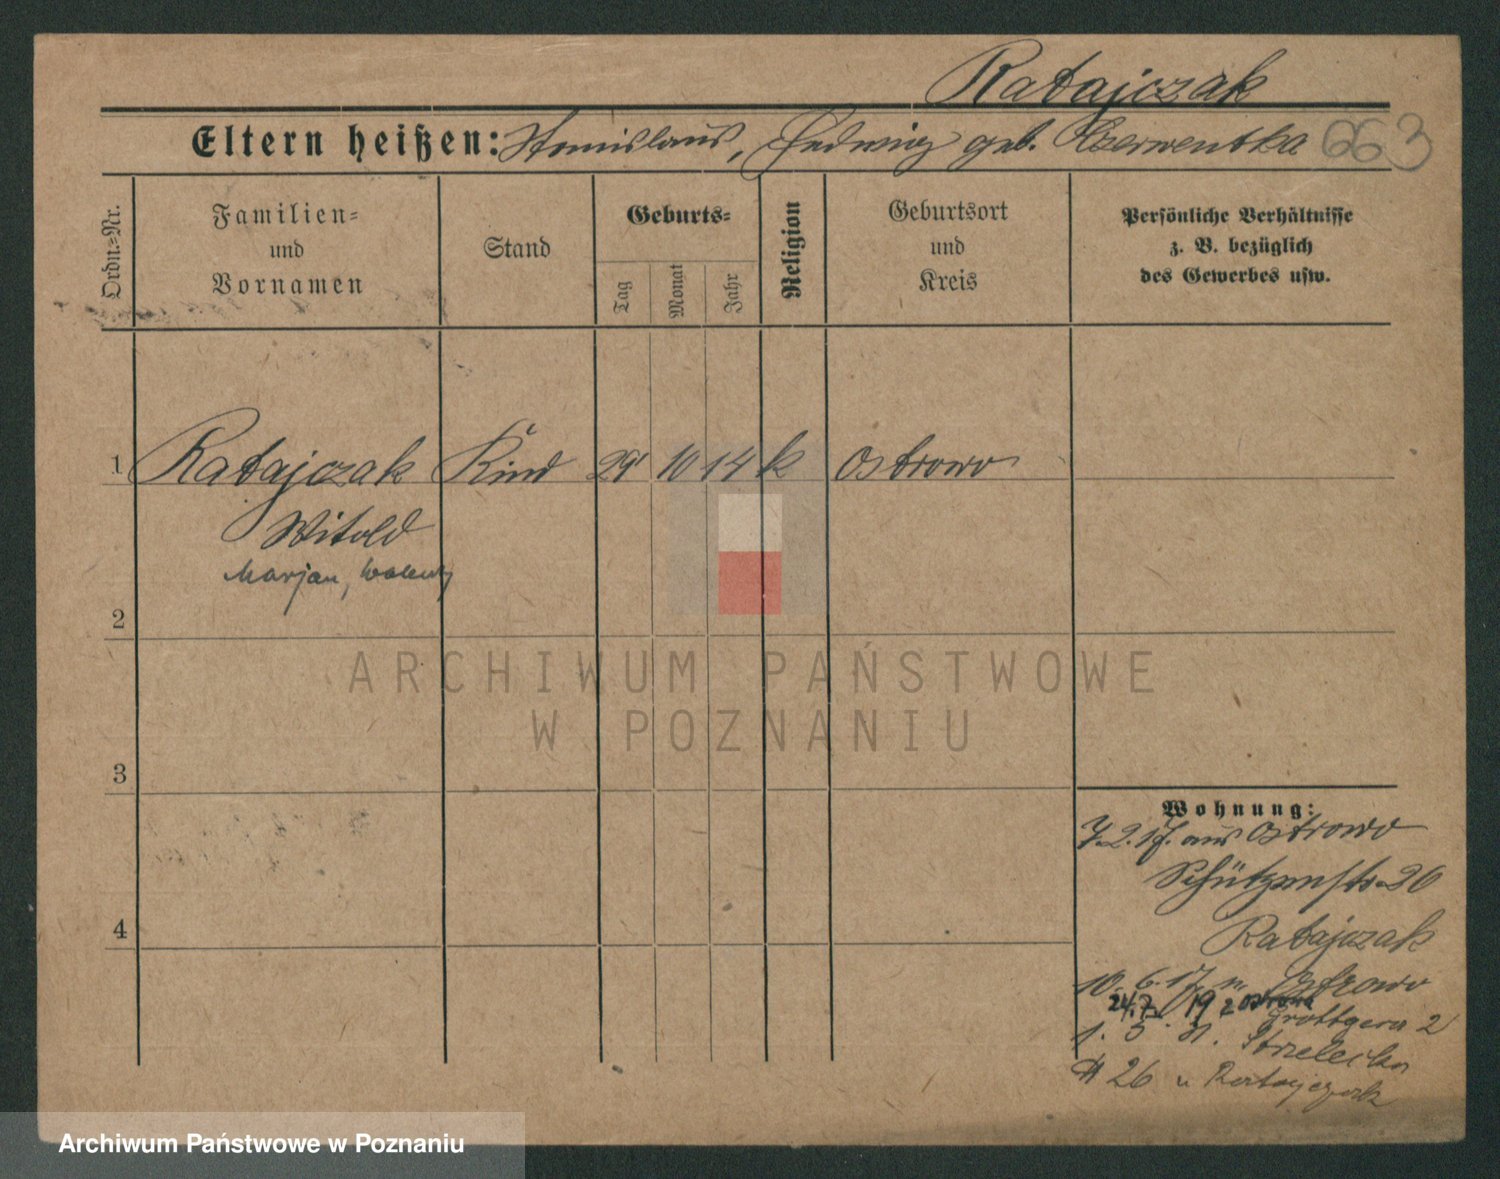 Ratajczak
Eltern heißen: Stanislaus, Hedwig geb. Czerwentka 663
Ordn.-Nr.
Familien-
und
Vornamen
Stand
Geburts-
Tag
Monat
Jahr
Religion
Geburtsort
und
Kreis
Persönliche Verhältnisse
z. B. bezüglich
des Gewerbes usw.
1 Ratajczak Kind 29 10 14 k Ostrowo
Witold
Marjan, Walenty
2
ARCHIWUM PAŃSTWOWE
W POZNANIU
3
Wohnung:
7.2.17. aus Ostrowo
Schützenstr. 26
Ratajczak
4
10.6.17. n. Ostrowo
24.7. 19 z Ostrowa
Grottgera 2
1. 5. 21. Strzelecka
# 26 u Ratajczak
Archiwum Państwowe w Poznaniu